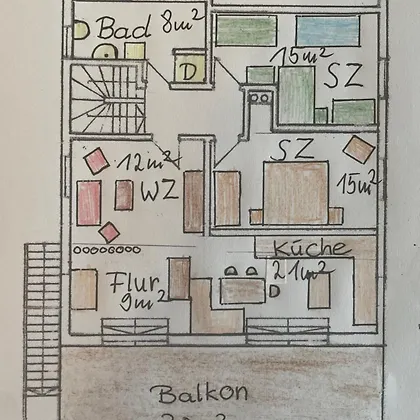 Bad 8m²
15m²
SZ
D
SZ
12m²
WZ
15m²
Küche
21m²
D
Flur
9m²
Balkon